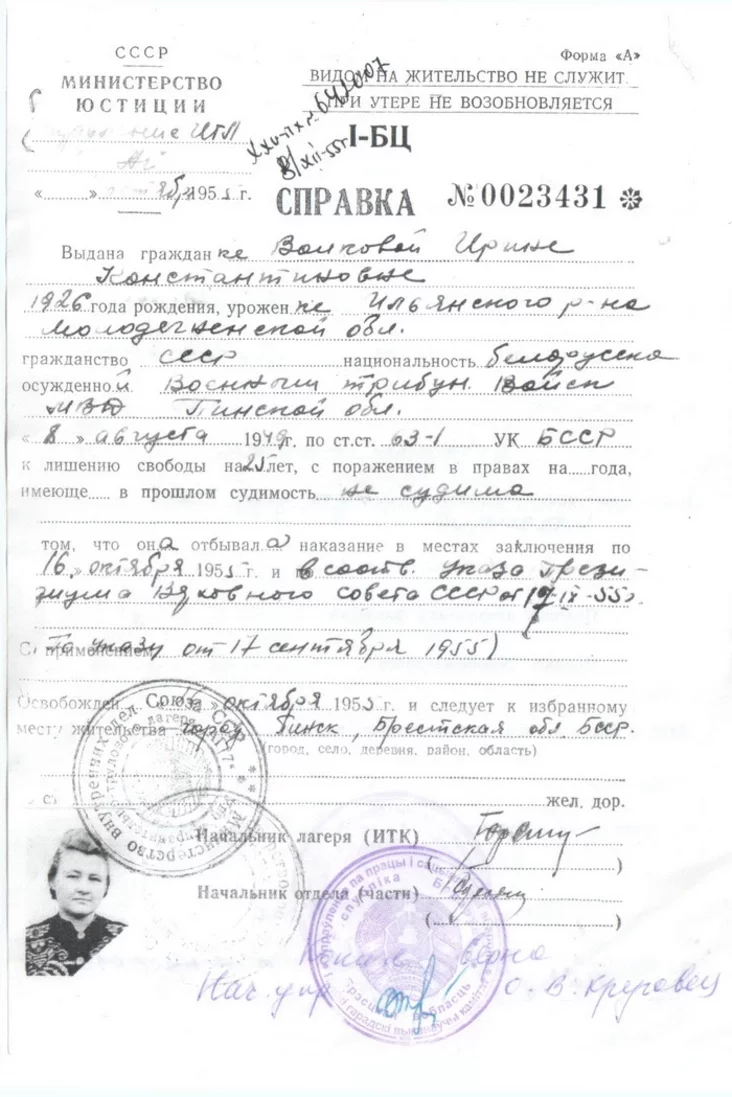 СССР
МИНИСТЕРСТВО
ЮСТИЦИИ
ИТЛ
«........» 1955 г.
Форма «А»
ВИДОМ НА ЖИТЕЛЬСТВО НЕ СЛУЖИТ.
ПРИ УТЕРЕ НЕ ВОЗОБНОВЛЯЕТСЯ
8/XII-55г
I-БЦ
СПРАВКА №0023431
Выдана гражданке Волковой Ирине
Константиновне
1926 года рождения, уроженке Ильянского р-на
Молодечненской обл.
гражданство СССР национальность белорусска
осужденной Военным трибун. Войск
МВД Пинской обл.
«8» августа 1949г. по ст.ст. 63-1 УК БССР
к лишению свободы на 25 лет, с поражением в правах на.....года,
имеюще..... в прошлом судимость не судима
том, что она отбывала наказание в местах заключения по
16 » октября 1955 г. и в соотв. указа Прези-
диума Верховного совета СССР от 17-IX-55г.
С применением По указу от 17 сентября 1955)
Освобожден « » октября 1955 г. и следует к избранному
месту жительства город Пинск, Брестская обл БССР.
(город, село, деревня, район, область)
жел. дор.
Начальник лагеря (ИТК)
(........................)
Начальник отдела (части)
(........................)
Копия верна
Нач. упр О. В. Круговец